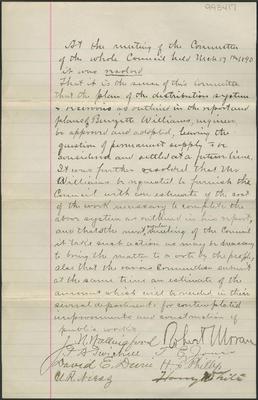 993417
At the meeting of the Committee
of the whole Council held Mch 17th 1890
it was resolved
That it is the sense of this Committee
that the plan of the distribution system
& reservoirs as outlined in the report and
plans of Benezette Williams, engineer
be approved and adopted, leaving the
question of permanent supply to be
considered and settled at a future time.
It was further resolved that Mr
Williams be requested to furnish the
Council with an estimate of the cost
of the work necessary to complete the
above system as outlined in his report,
and that at the next meeting of the Council
it take such action as may be necessary
to bring the matter to a vote by the people,
also that the various Committees submit
at the same time an estimate of the
amount which will be needed in their
several departments for contemplated
improvements and construction of
public works
Robert Moran
David E. Durie
H. Phillips
Harry White